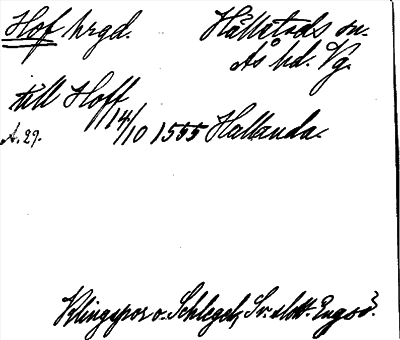 Hof hrgd. Hällstads sn.
Ås hd. Vg.
till Hoff
A. 29. 14/10 1555 Hallanda.
Klingspor o. Schlegel, Sv. slott. Engsö.